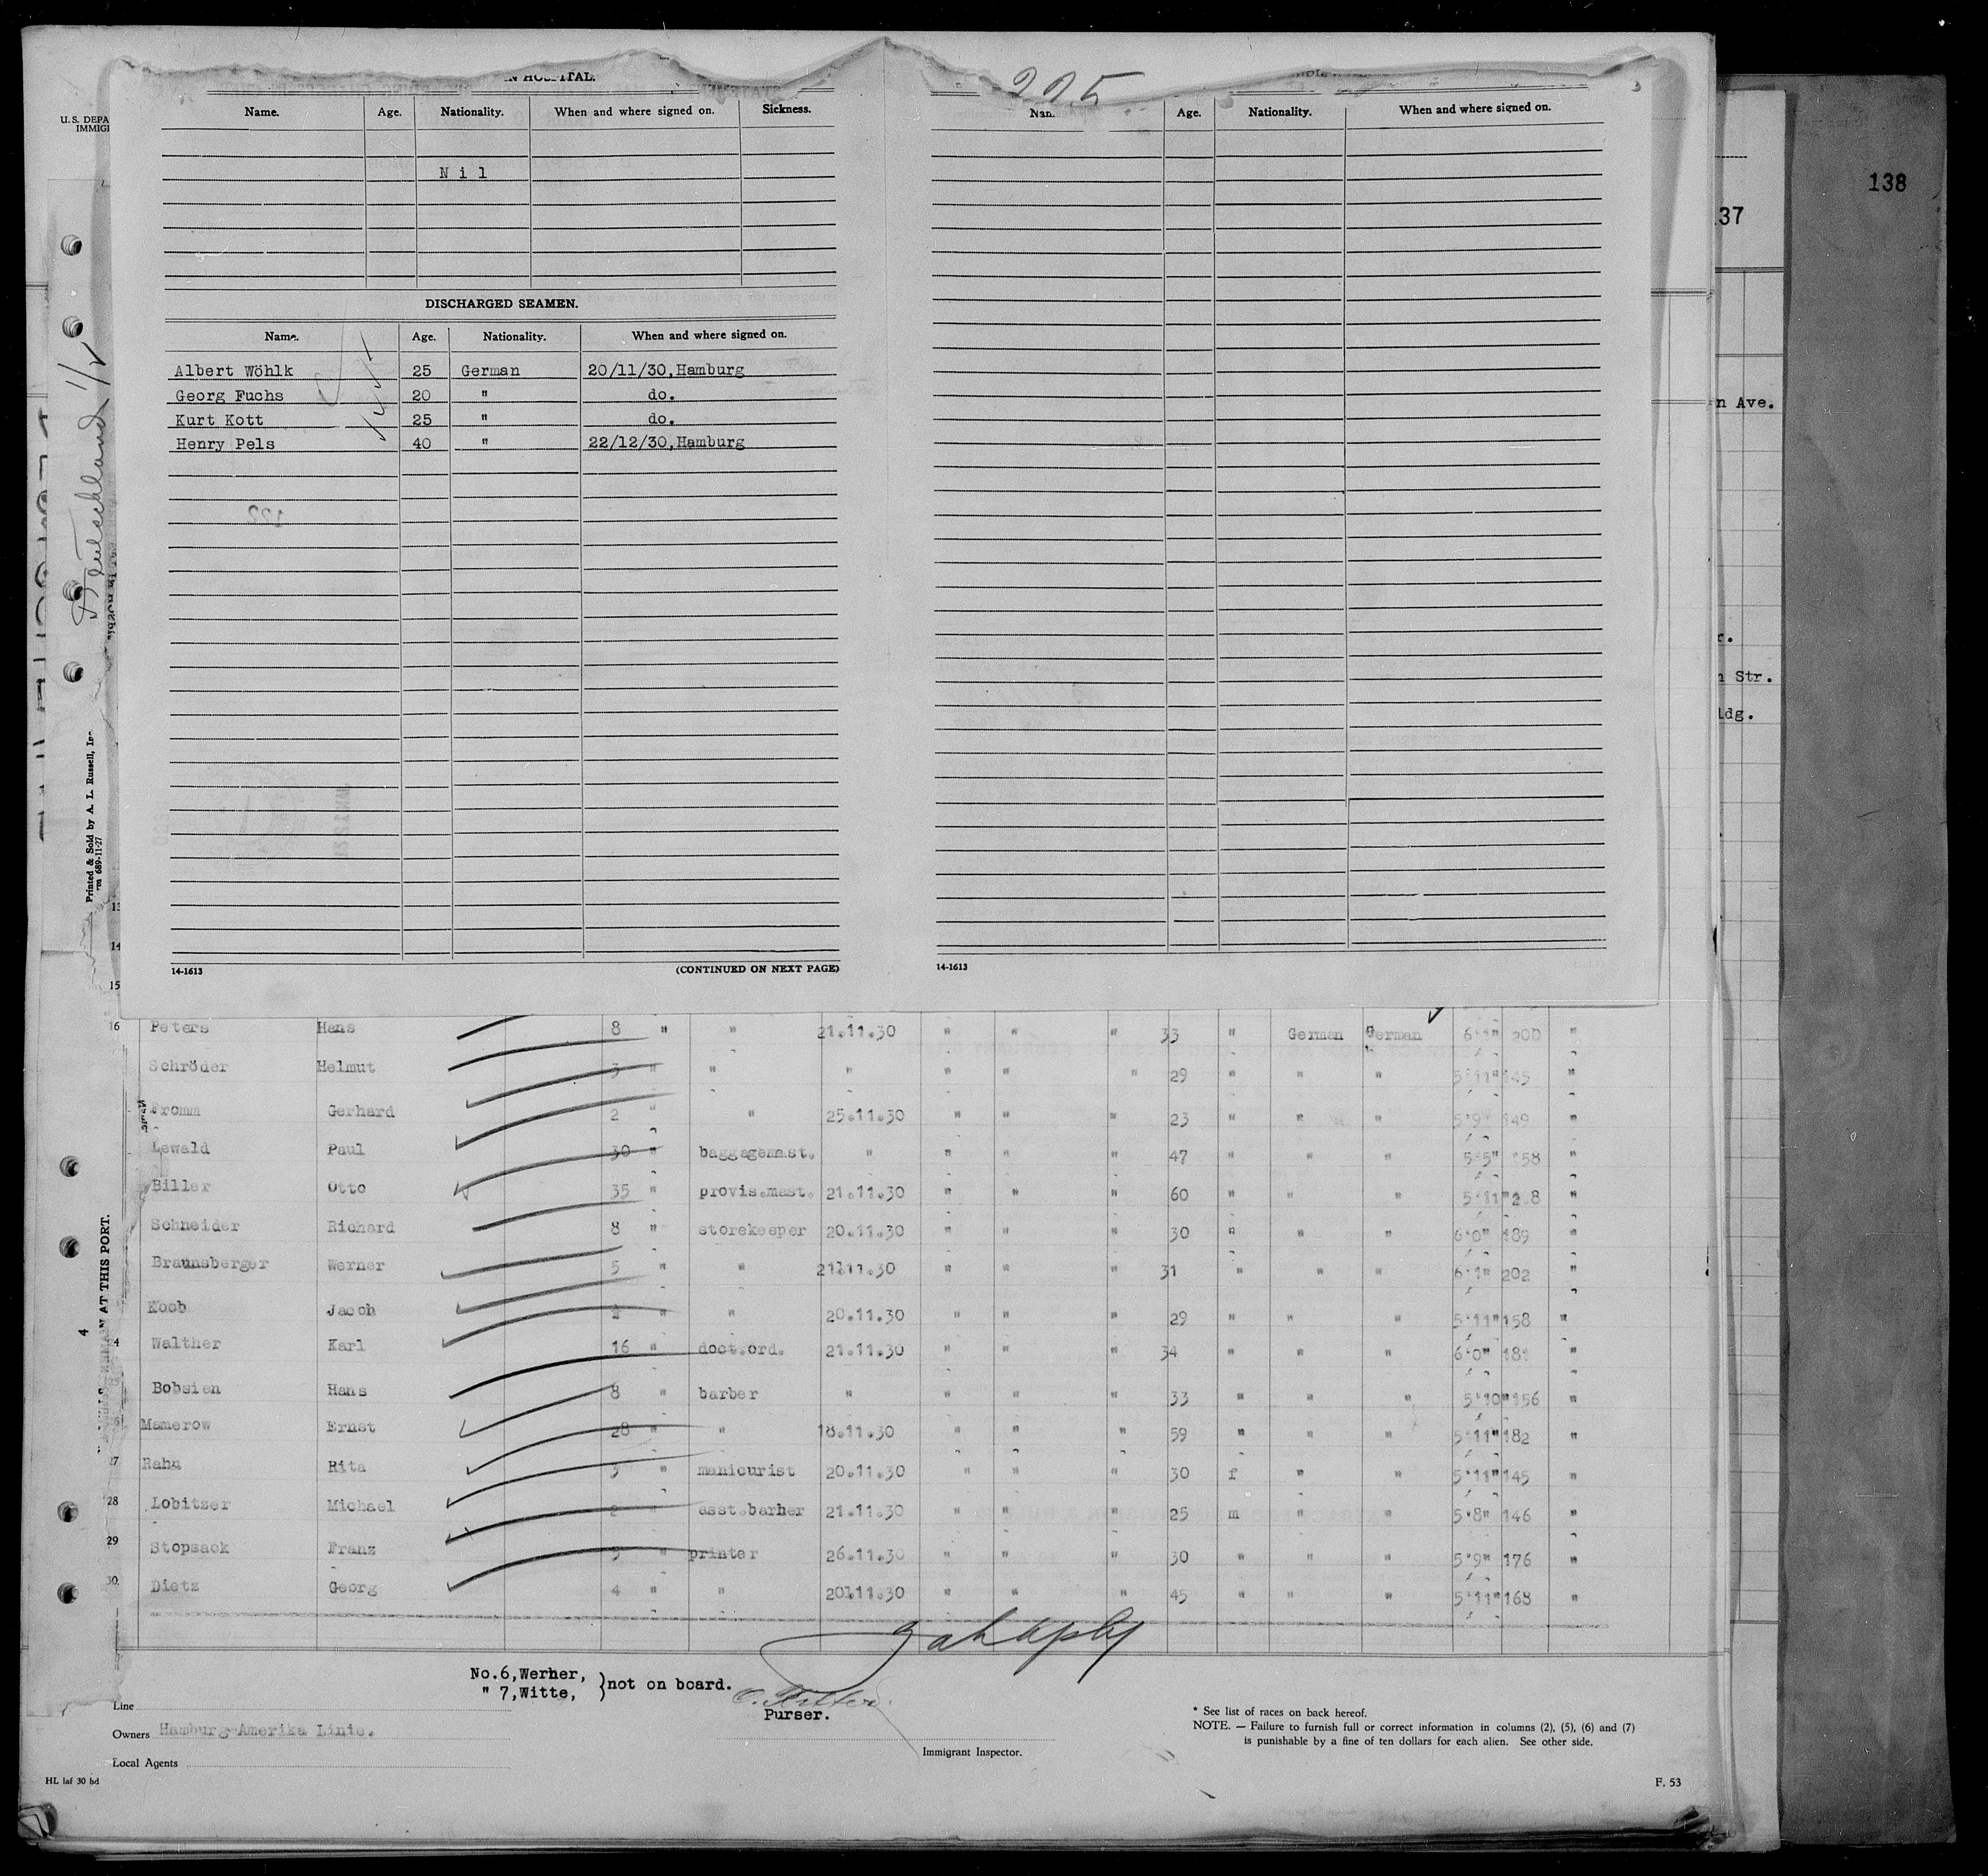 138
37
U.S. DEPA
IMMIGI
225
IN HOSPITAL.
Name. Age. Nationality. When and where signed on. Sickness.
Nil
DISCHARGED SEAMEN.
Name. Age. Nationality. When and where signed on.
Albert Wöhlk 25 German 20/11/30,Hamburg
Georg Fuchs 20 " do.
Kurt Kott 25 " do.
Henry Pels 40 " 22/12/30,Hamburg
14-1613 (CONTINUED ON NEXT PAGE)
Nam Age. Nationality. When and where signed on.
14-1613
n Ave.
r.
n Str.
ldg.
Deutschland 1/2
Printed & Sold by A. L. Russell, Inc
rm 689-11-27
AT THIS PORT.
4
13
14
15
16 Peters Hans 8 " " 21.11.30 " " " 33 " German German 200 "
Schröder Helmut 3 " " " " " " 29 " " " 5'11" 145 "
Fromm Gerhard 2 " " 25.11.30 " " " 23 " " " 5'9" 149 "
Lewald Paul 30 " baggagemast. " " " " 47 " " " 5'5" 158 "
Biller Otto 35 " provis.mast. 21.11.30 " " " 60 " " " 5'11" "
Schneider Richard 8 " storekeeper 20.11.30 " " " 30 " " " 6'0" 189 "
Braunsberger Werner 5 " " 21.11.30 " " " 31 " " " 6'1" 202 "
Koob Jacob " " 20.11.30 " " " 29 " " " 5'11" 158 "
4 Walther Karl 16 " doct.ord. 21.11.30 " " " 34 " " " 6'0" 181 "
25 Bobsien Hans 8 " barber " " " " 33 " " " 5'10" 156 "
6 Mamerow Ernst 28 " " 18.11.30 " " " 59 " " " 5'11" 182 "
27 Rahn Rita 3 " manicurist 20.11.30 " " " 30 f " " 5'11" 145 "
28 Lobitzer Michael 2 " asst.barher 21.11.30 " " " 25 m " " 5'8" 146 "
29 Stopsack Franz 5 " printer 26.11.30 " " " 30 " " " 5'9" 176 "
30 Dietz Georg 4 " " 20.11.30 " " " 45 " " " 5'11" 168 "
No.6,Werher,
" 7,Witte, }not on board.
Purser.
Line
Owners Hamburg-Amerika Linie.
Local Agents
Immigrant Inspector.
* See list of races on back hereof.
NOTE. — Failure to furnish full or correct information in columns (2), (5), (6) and (7)
is punishable by a fine of ten dollars for each alien. See other side.
HL laf 30 hd
F. 53